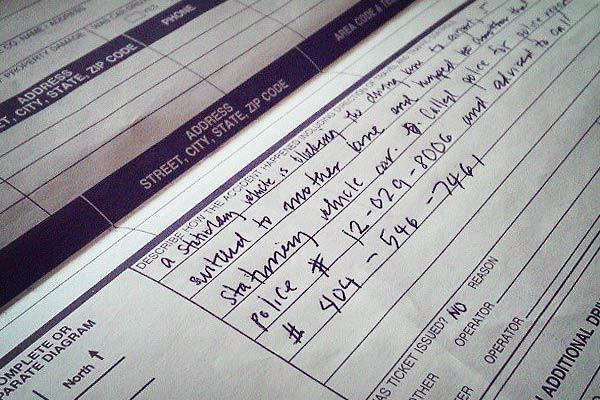 CO. NAME / ADDRESS
YES
PHONE
PROPERTY DAMAGE
ADDRESS
STREET, CITY, STATE, ZIP CODE
AREA CODE &
ADDRESS
STREET, CITY, STATE, ZIP CODE
DESCRIBE HOW THE ACCIDENT HAPPENED, INCLUDING DIRECTION OF TRAVEL
a stationary vehicle is blocking the driving lane to airport. I
switched to another lane and bumped the
stationary vehicle car. Called police for police report
police # 12-029-8006 and advised to call
# 404-546-7461
COMPLETE OR
SEPARATE DIAGRAM
North
WAS TICKET ISSUED? NO REASON
OPERATOR
OPERATOR
ADDITIONAL